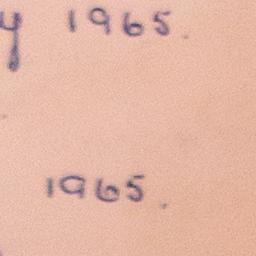 y 1965.
1965.